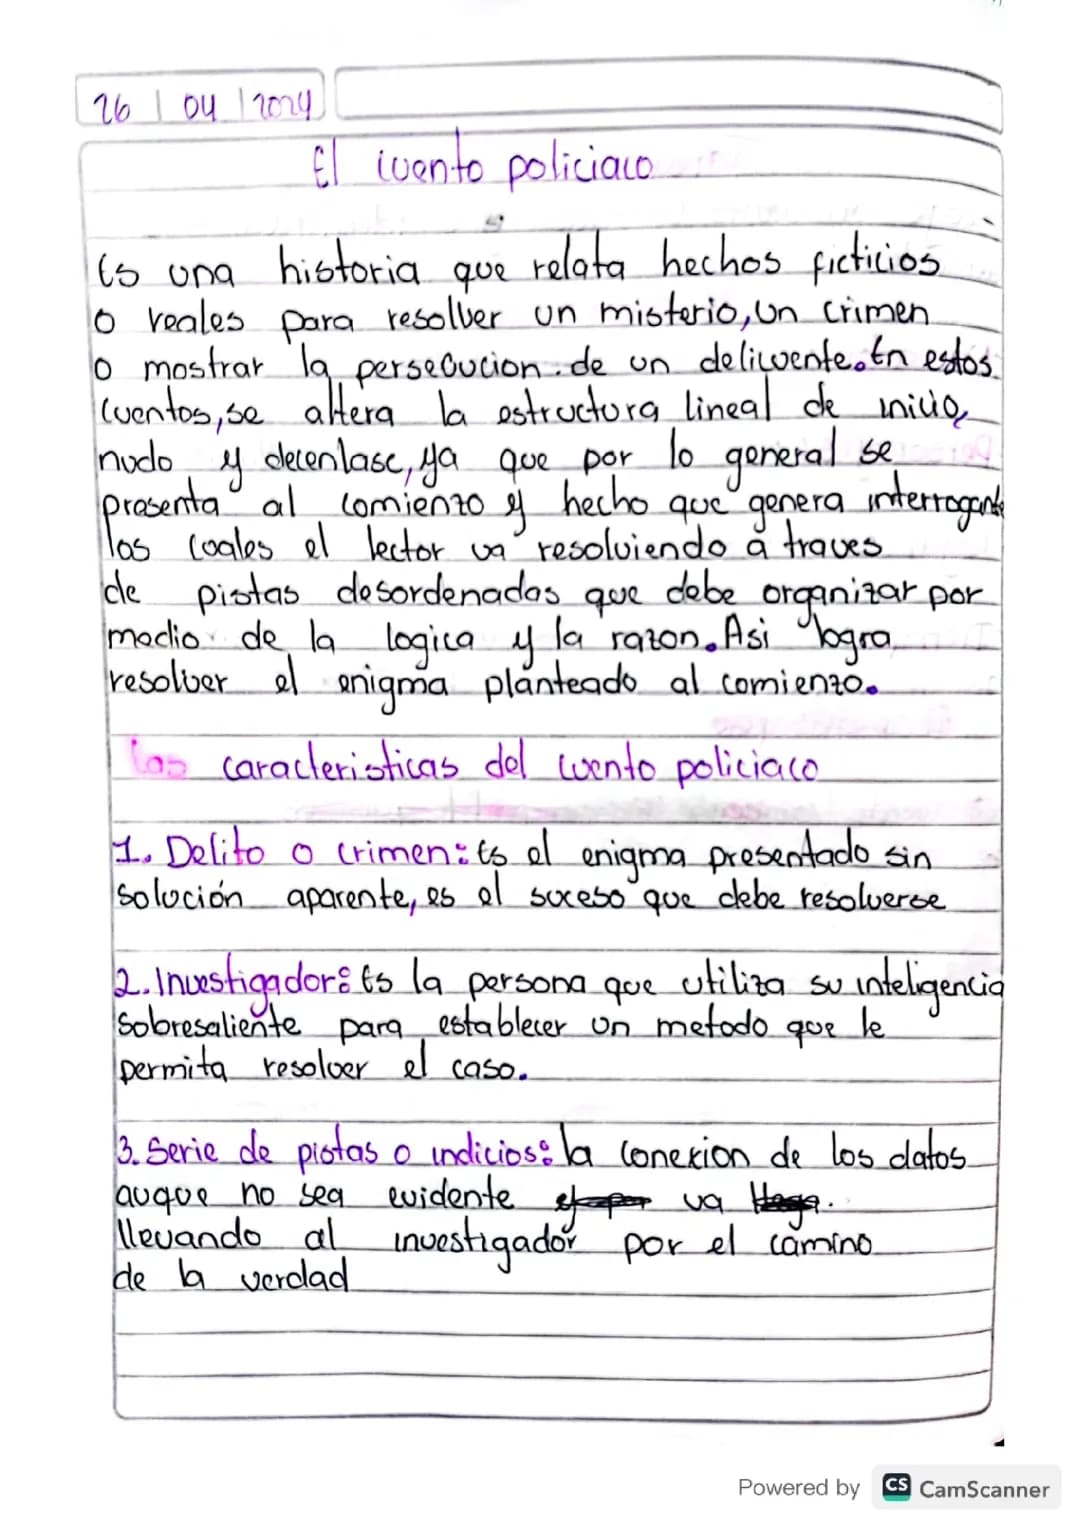 26 | 04 | 2024
El cuento policiaco
Es una historia que relata hechos ficticios
o reales para resolver un misterio, un crimen
o mostrar la persecucion de un delicuente. En estos
cuentos, se altera la estructura lineal de inicio,
nudo y decenlase, ya que por lo general se
presenta al comienzo el hecho que genera interrogante
los cuales el lector va resolviendo a traves
de pistas desordenadas que debe organizar por
medio de la logica y la razon. Asi logra
resolver el enigma planteado al comienzo.
las caracteristicas del cuento policiaco
1. Delito o crimen: Es el enigma presentado sin
solución aparente, es el suceso que debe resolverse
2. Investigador: Es la persona que utiliza su inteligencia
sobresaliente para establecer un metodo que le
permita resolver el caso.
3. Serie de pistas o indicios: la conexion de los datos
auque no sea evidente va
llevando al investigador por el camino
de la verdad
Powered by CS CamScanner